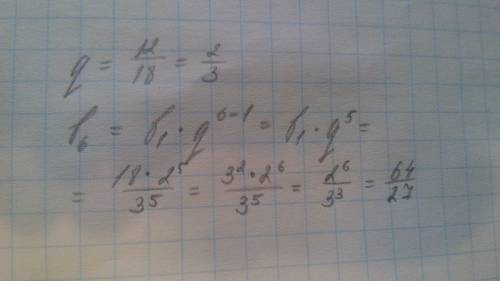 q = 12/18 = 2/3
b₆ = b₁ · q⁶⁻¹ = b₁ · q⁵ =
= 18 · 2⁵/3⁵ = 3² · 2⁶/3⁵ = 2⁶/3³ = 64/27